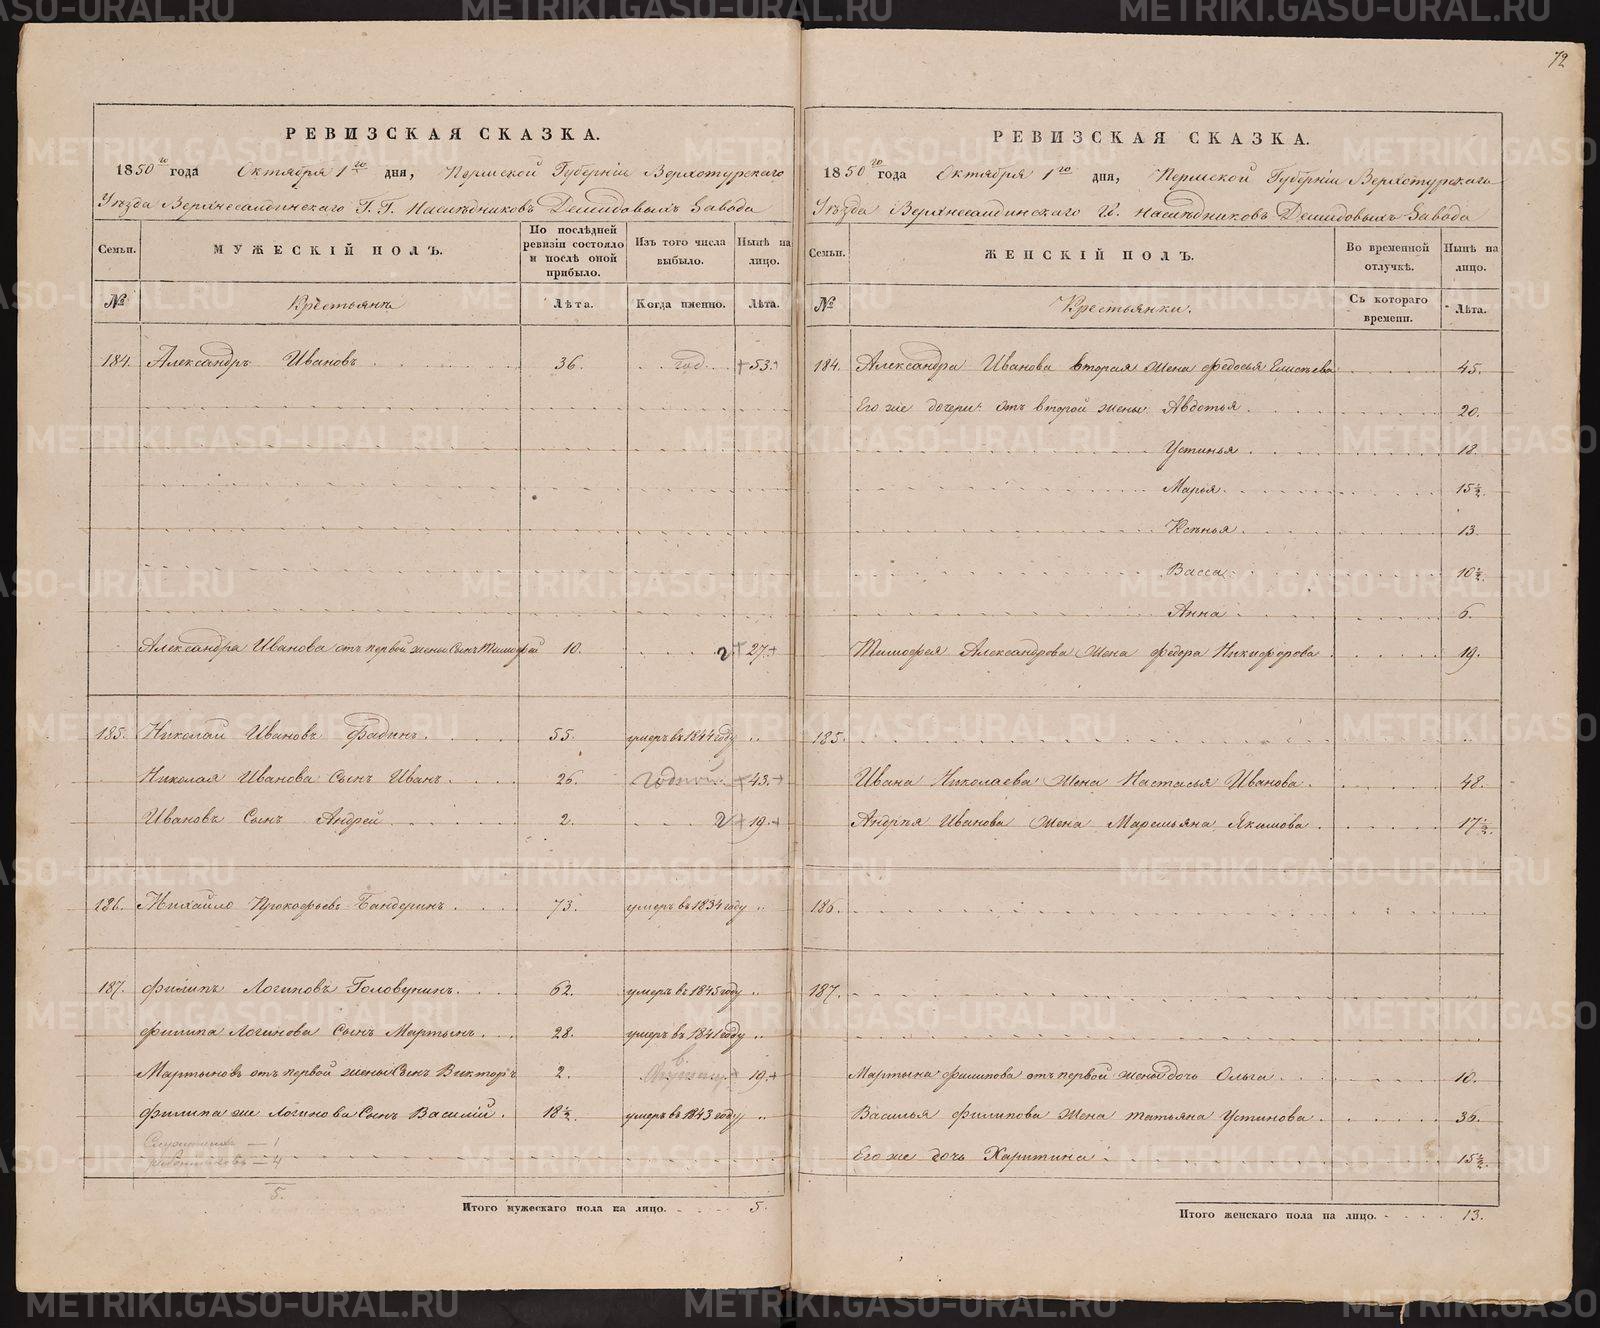 72
РЕВИЗСКАЯ СКАЗКА.
1850го года Октября 1го дня, Пермской Губерніи Верхотурскаго
Уѣзда Верхнесалдинскаго Г. Г. Наслѣдниковъ Демидовыхъ Завода
Семьи. МУЖЕСКІЙ ПОЛЪ. По послѣдней ревизіи состояло и послѣ оной прибыло. Изъ того числа выбыло. Нынѣ на лицо.
№ Крестьянъ Лѣта. Когда именно. Лѣта.
184. Александръ Ивановъ 36. год +53.+
Александра Иванова отъ первой жены Сынъ Тимофей 10. 2 +27.+
185. Николай Ивановъ Фадинъ. 55. умеръ въ 1844 году „
Николая Иванова Сынъ Иванъ. 26. годной +43.+
Ивановъ Сынъ Андрей 2. 2 +19.+
186. Михайло Прокофьевъ Бандеринъ. 73. умеръ въ 1834 году „
187. Филипъ Логиновъ Головунинъ. 62. умеръ въ 1845 году „
Филипа Логинова Сынъ Мартынъ. 28. умеръ въ 1841 году „
Мартыновъ отъ первой жены Сынъ Викторъ 2. + 19.+
Филипа же Логинова Сынъ Василій. 18½. умеръ въ 1843 году „
— 1
работниковъ — 4
5.
Итого мужескаго пола на лицо. 5.
РЕВИЗСКАЯ СКАЗКА.
1850го года Октября 1го дня, Пермской Губерніи Верхотурскаго
Уѣзда Верхнесалдинскаго Г. Наслѣдниковъ Демидовыхъ Завода
Семьи. ЖЕНСКІЙ ПОЛЪ. Во временной отлучкѣ. Нынѣ на лицо.
№ Крестьянки. Съ котораго времени. Лѣта.
184. Александра Иванова вторая жена Федосья Елисѣева 45.
Его же дочери: отъ второй жены: Авдотья 20.
Устинья 18.
Марья 15½.
Ксенья 13.
Васса 10½.
Анна 6.
Тимофея Александрова жена Федора Никифорова 19.
185.
Ивана Николаева жена Настасья Иванова 48.
Андрея Иванова жена Маремьяна Якимова 17½.
186.
187.
Мартына Филипова отъ первой жены дочь Ольга 10.
Василья Филипова жена Татьяна Устинова 36.
Его же дочь Харитина 15½.
Итого женскаго пола на лицо. 13.
METRIKI.GASO-URAL.RU